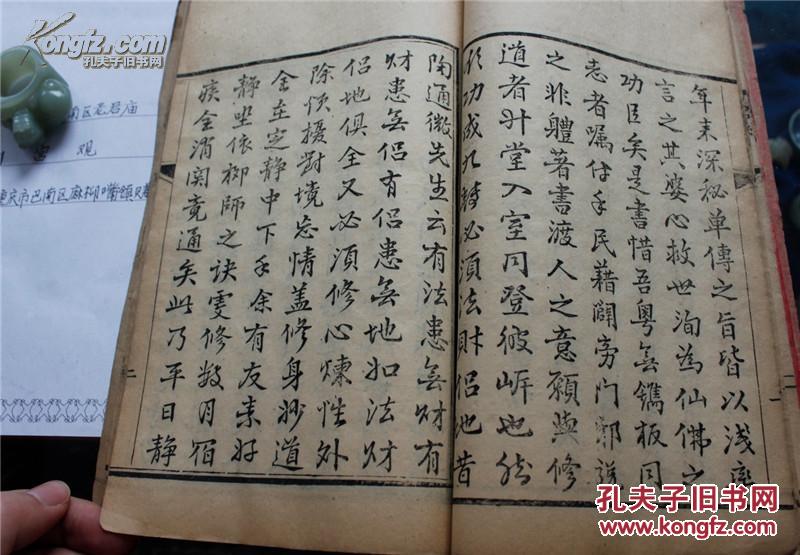 Kongfz.com
孔夫子旧书网
南区老君庙
观
重庆市巴南区麻柳嘴镇
年来深秘单傳之旨皆以淺
言之其婆心救世洵為仙佛之
功臣矣是書惜吾粤無鐫板同
志者嘱付手民藉闢旁門邪説
之非軆著書渡人之意願與修
道者升堂入室同登彼岍也然
欲功成九轉必須法財侣地昔
陶通微先生云有法患無财有
财患無侣有侣患無地如法财
侣地俱全又必須修心煉性外
除煩擾對境忘情盖修身妙道
全在定静中下手余有友素好
静坐依柳師之訣雯修数月宿
疾全消関竟通矣此乃平日静
二
孔夫子旧书网
www.kongfz.com